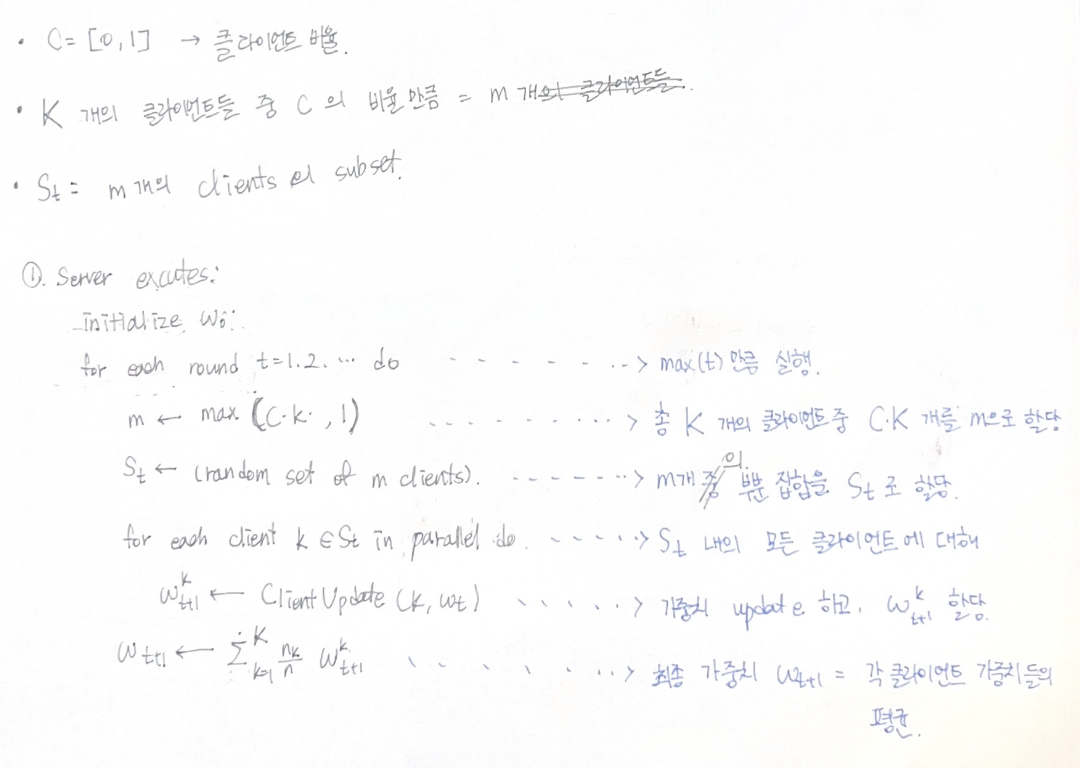 • C = [0, 1] → 클라이언트 비율.
• K 개의 클라이언트들 중 C 의 비율만큼 = m 개의 클라이언트들.
• St = m개의 clients의 subset.
①. Server excutes:
initialize w₀:
for each round t=1.2. ⋯ do - - - - - - ··> max(t) 만큼 실행.
m ← max (C·k·, 1) - - - - - - ···> 총 K 개의 클라이언트 중 C·K 개를 m으로 할당
St ← (random set of m clients). - - - - - ··> m개 중 의 부분 집합을 St 로 할당.
for each client k ∈ St in parallel do. - - - - ··> St 내의 모든 클라이언트에 대해
w_{t+1}^k ← ClientUpdate (k, wt) - - - - - > 가중치 update 하고. w_{t+1}^k 할당.
w_{t+1} ← Σ_{k=1}^K n_k/n w_{t+1}^k - - - - - ··> 최종 가중치 w_{t+1} = 각 클라이언트 가중치들의
평균.